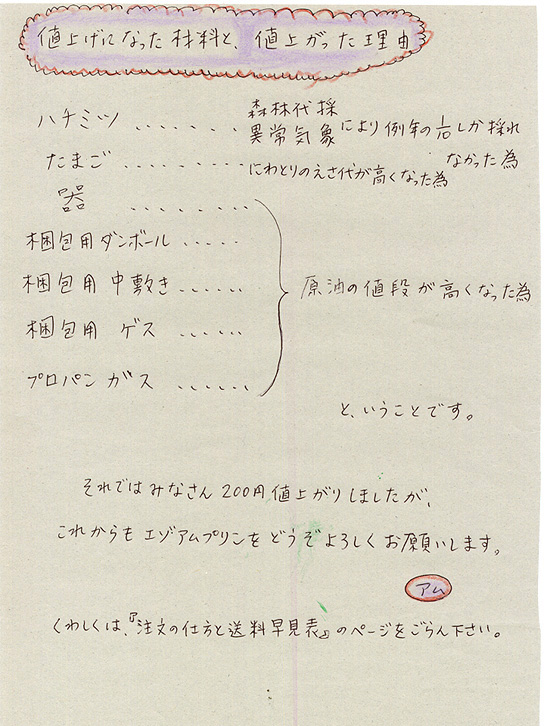 値上げになった材料と、値上がった理由
ハチミツ ........ 森林代採
異常気象により例年の1/10しか採れ
なかった為
たまご ........... にわとりのえさ代が高くなった為
器 ..........
梱包用ダンボール .....
梱包用中敷き ......
梱包用 ゲス ......
プロパンガス .......
原油の値段が高くなった為
と、いうことです。
それではみなさん200円値上がりしましたが、
これからもエゾアムプリンをどうぞよろしくお願いします。
アム
くわしくは、『注文の仕方と送料早見表』のページをごらん下さい。